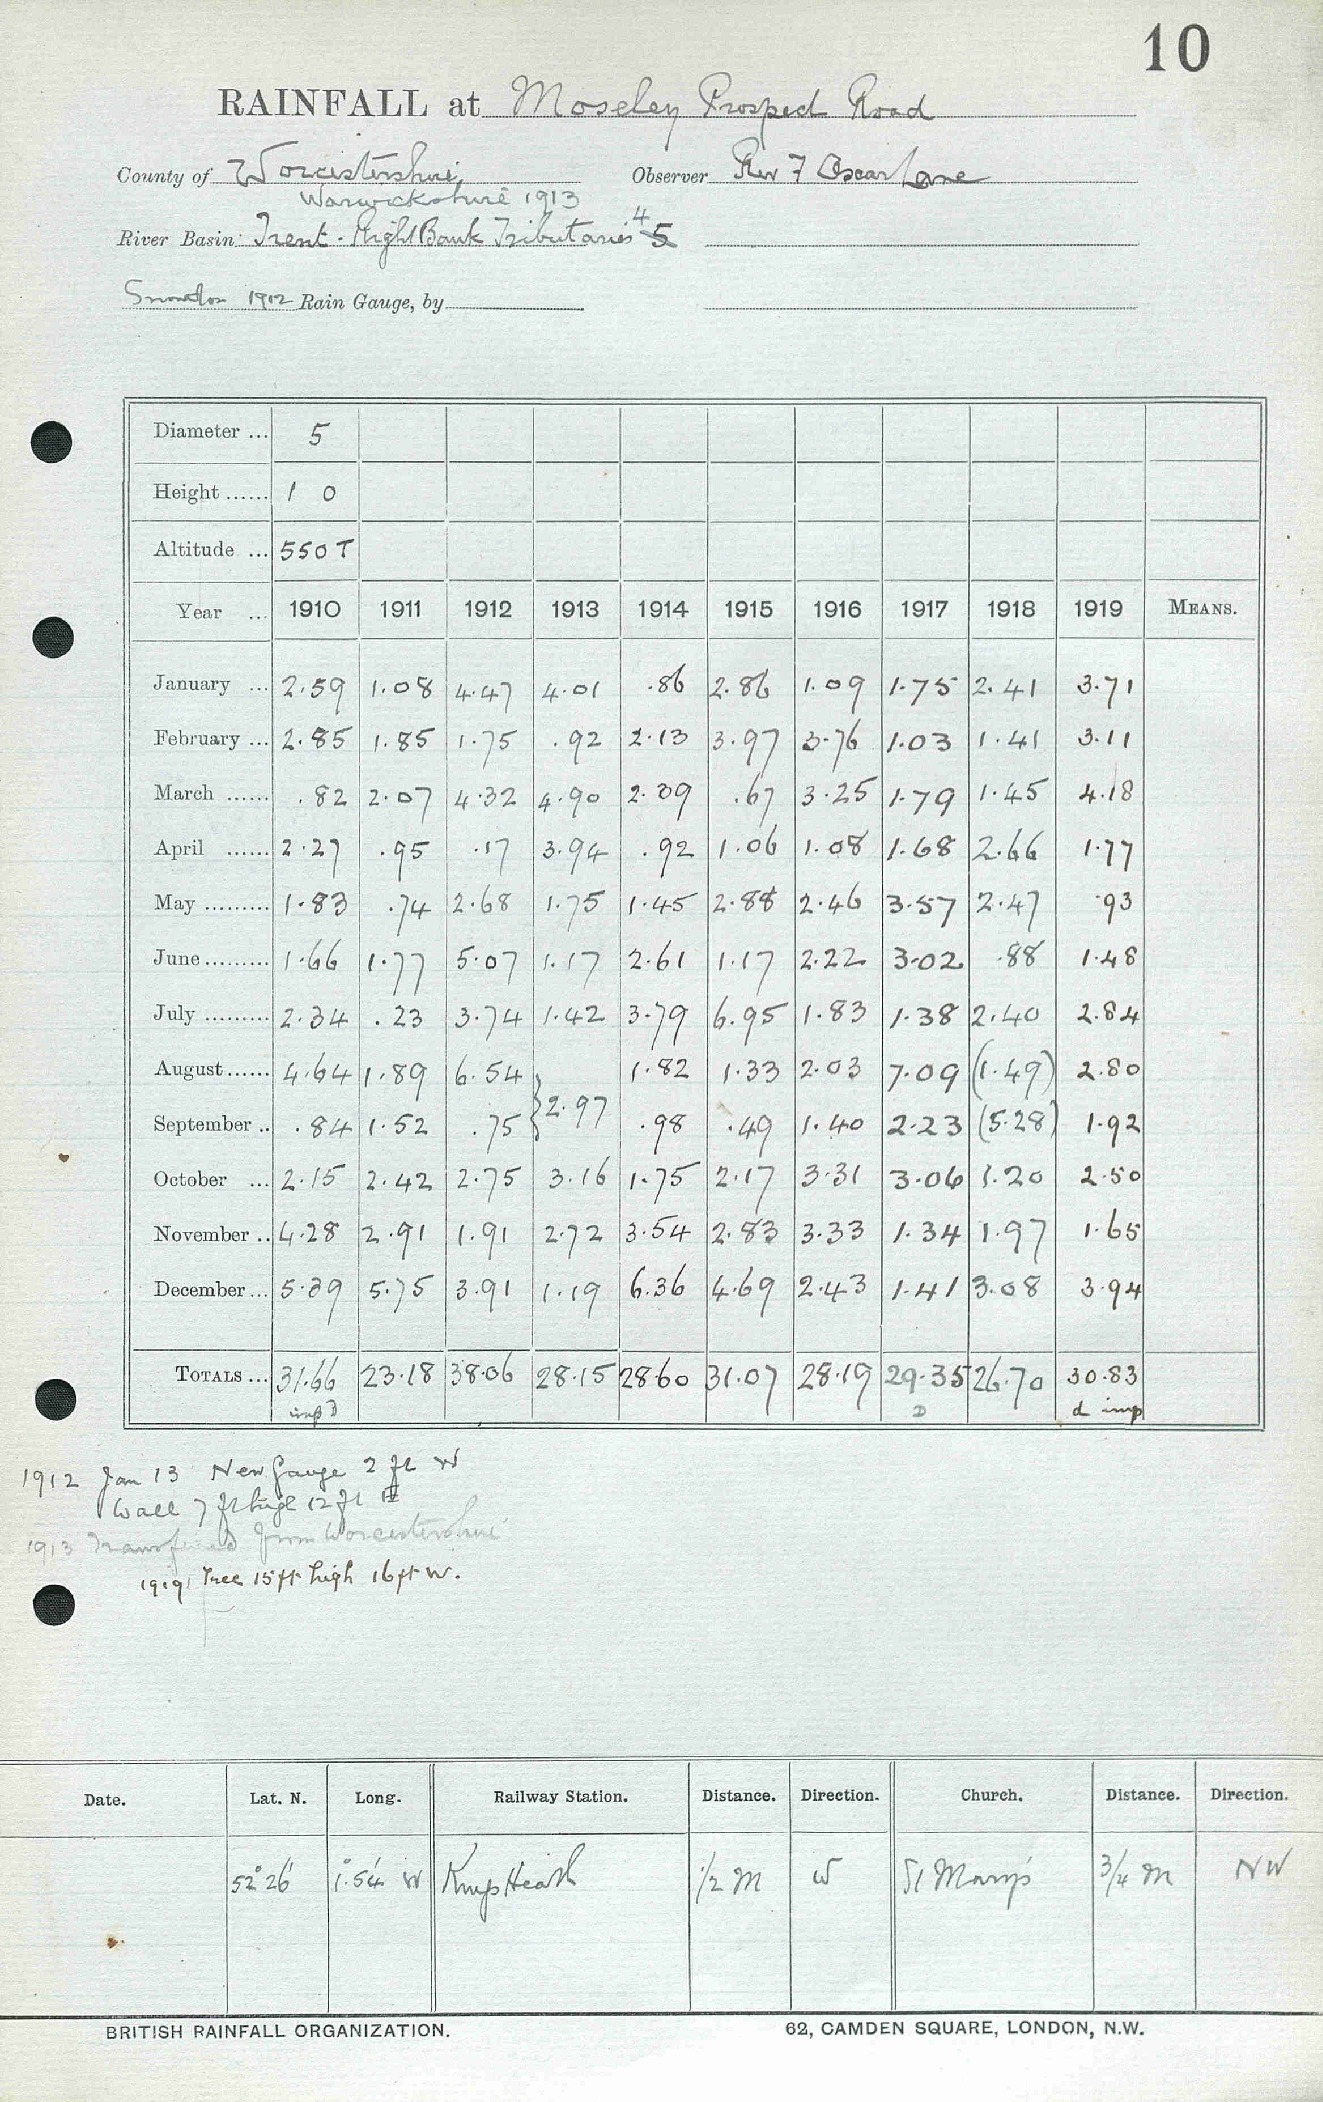 10
RAINFALL at Moseley Prospect Road
County of Worcestershire Observer Rev F Oscar Lane
Warwickshire 1913
River Basin Trent - Right Bank Tributaries 4 5
Snowdon 1912 Rain Gauge, by
Diameter ... 5
Height ...... 1 0
Altitude ... 550 T
Year ... 1910 1911 1912 1913 1914 1915 1916 1917 1918 1919 MEANS.
January ... 2.59 1.08 4.47 4.01 .86 2.86 1.09 1.75 2.41 3.71
February ... 2.85 1.85 1.75 .92 2.13 3.97 3.76 1.03 1.41 3.11
March ...... .82 2.07 4.32 4.90 2.39 .67 3.25 1.79 1.45 4.18
April ...... 2.27 .95 .17 3.94 .92 1.06 1.08 1.68 2.66 1.77
May ......... 1.83 .74 2.68 1.75 1.45 2.88 2.46 3.57 2.47 .93
June ......... 1.66 1.77 5.07 1.17 2.61 1.17 2.22 3.02 .88 1.48
July ......... 2.34 .23 3.74 1.42 3.79 6.95 1.83 1.38 2.40 2.84
August ...... 4.64 1.89 6.54 1.82 1.33 2.03 7.09 (1.49) 2.80
} 2.97
September .. .84 1.52 .75 .98 .49 1.40 2.23 (5.28) 1.92
October ... 2.15 2.42 2.75 3.16 1.75 2.17 3.31 3.06 1.20 2.50
November .. 4.28 2.91 1.91 2.72 3.54 2.83 3.33 1.34 1.97 1.65
December ... 5.39 5.75 3.91 1.19 6.36 4.69 2.43 1.41 3.08 3.94
TOTALS ... 31.66 23.18 38.06 28.15 28.60 31.07 28.19 29.35 26.70 30.83
imp D D d imp
1912 Jan 13 New Gauge 2 ft W
Wall 7 ft high 12 ft E
1913 Transferred from Worcestershire
1919 Tree 15 ft high 16 ft W.
Date. Lat. N. Long. Railway Station. Distance. Direction. Church. Distance. Direction.
52° 26' 1° 54' W Kings Heath 1/2 M W St Mary's 3/4 M NW
BRITISH RAINFALL ORGANIZATION. 62, CAMDEN SQUARE, LONDON, N.W.